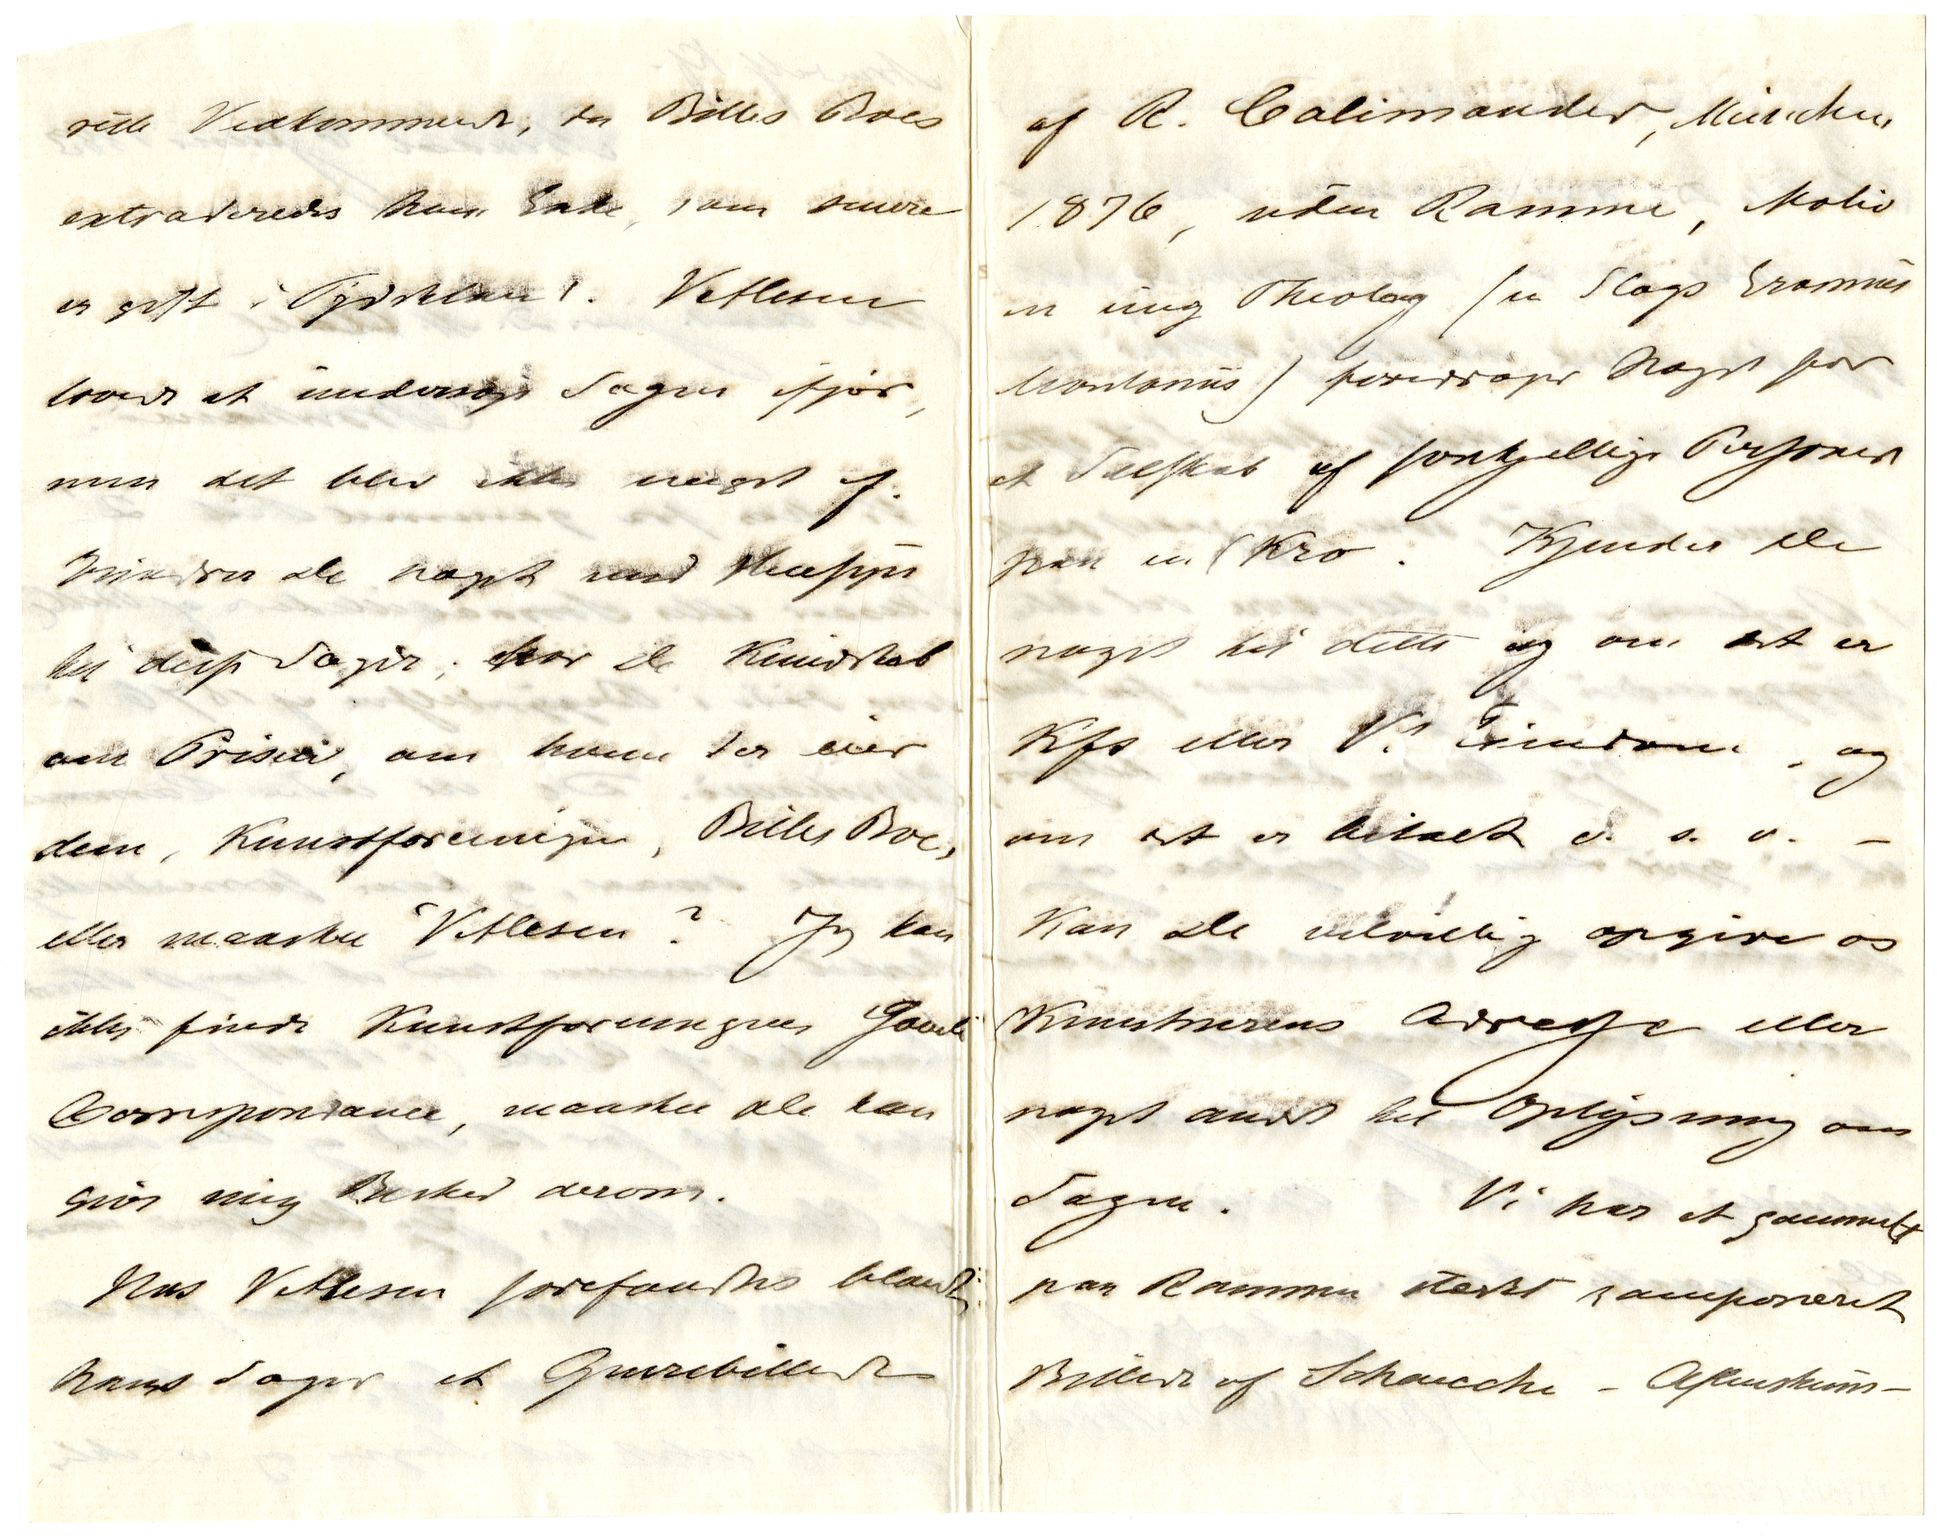 rette Vedkommende, da Billes Boes
extraderedes hans Enke, som senere
er gift i Tydskland. Vetlesen
lovede at undersøge Sagen ifjor,
men det blev ikke noget af.
De noget med Hensyn
til disse Sager, har De Kundskab
om Prisen, om hvem der eier
dem, Kunstforeningen, Billes Boe,
eller maaskee Vetlesen? Jeg kan
ikke finde Kunstforeningens Gamle
Correspondance, maaskee De kan
give mig Besked derom.
Hos Vetlesen forefandtes blandt
hans Sager et Genrebillede
af R. Calimander, München
1876, uden Ramme, Motiv
en ung Theolog (en Slags Erasmus
Montanus) foredrager Noget for
et Selskab af forskjellige Personer
paa en Kro. Kjender De
noget til dette og om det er
Kfs eller V.s Eiendom, og
om det er betalt o. s. v. –
Kan De velvillig opgive os
Kunstnerens Adresse eller
noget andet til Oplysning om
Sagen. Vi har et gammelt
paa Rammen stærkt ramponeret
Billede af Schancche – Aftenstem-